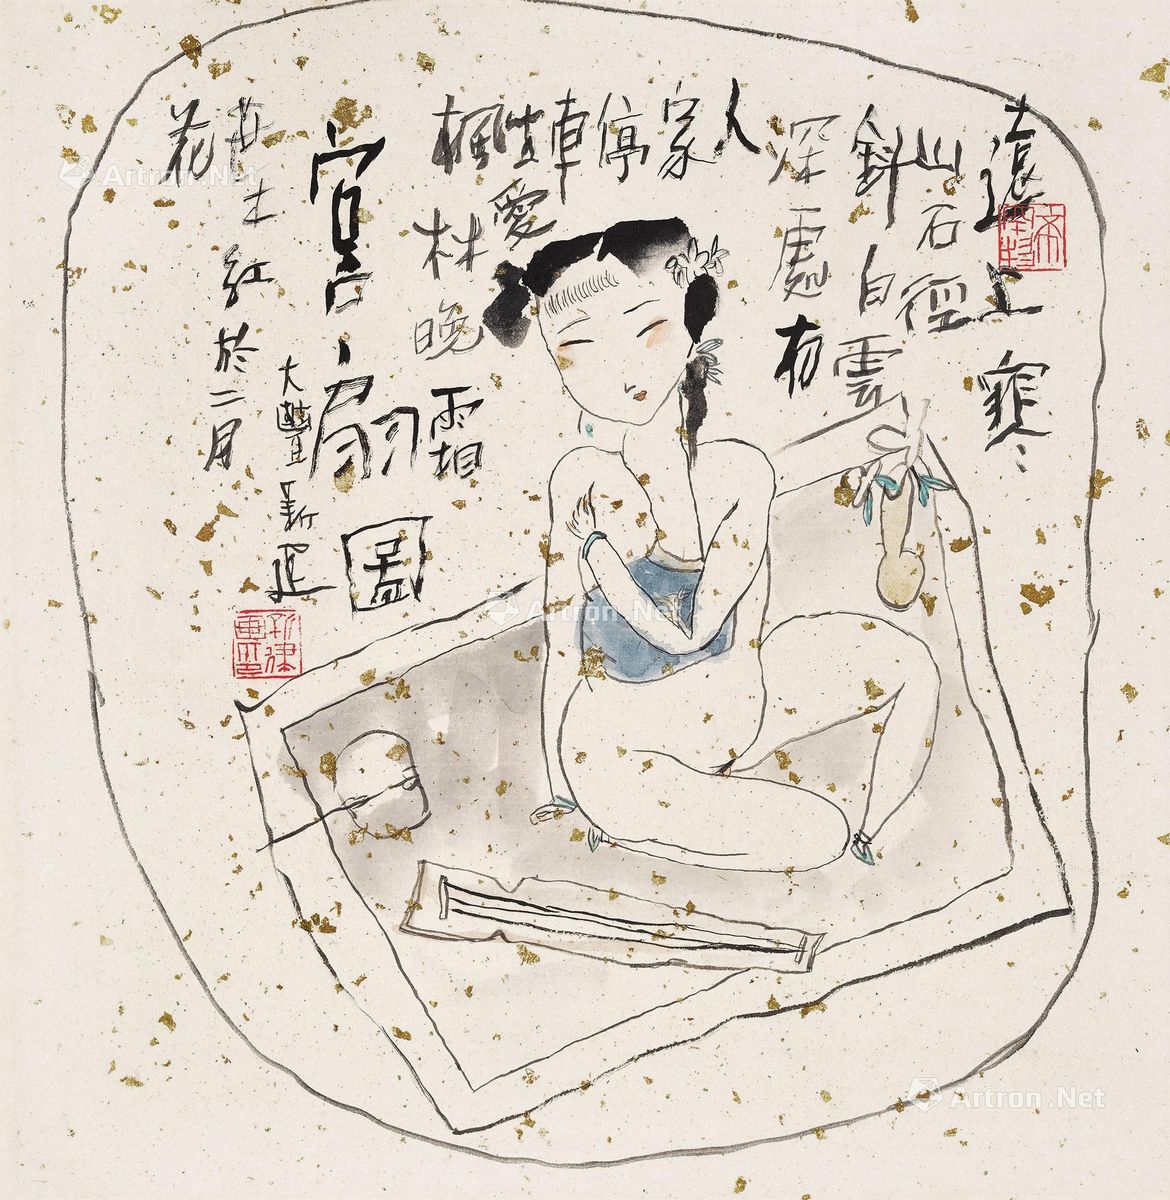 遠上寒
山石徑
斜白雲
深處有
人
家
停
車
坐愛
楓林晚霜
葉紅於二月
花
宮扇圖
大豐新建
Artron.Net
Artron.Net
Artron.Net